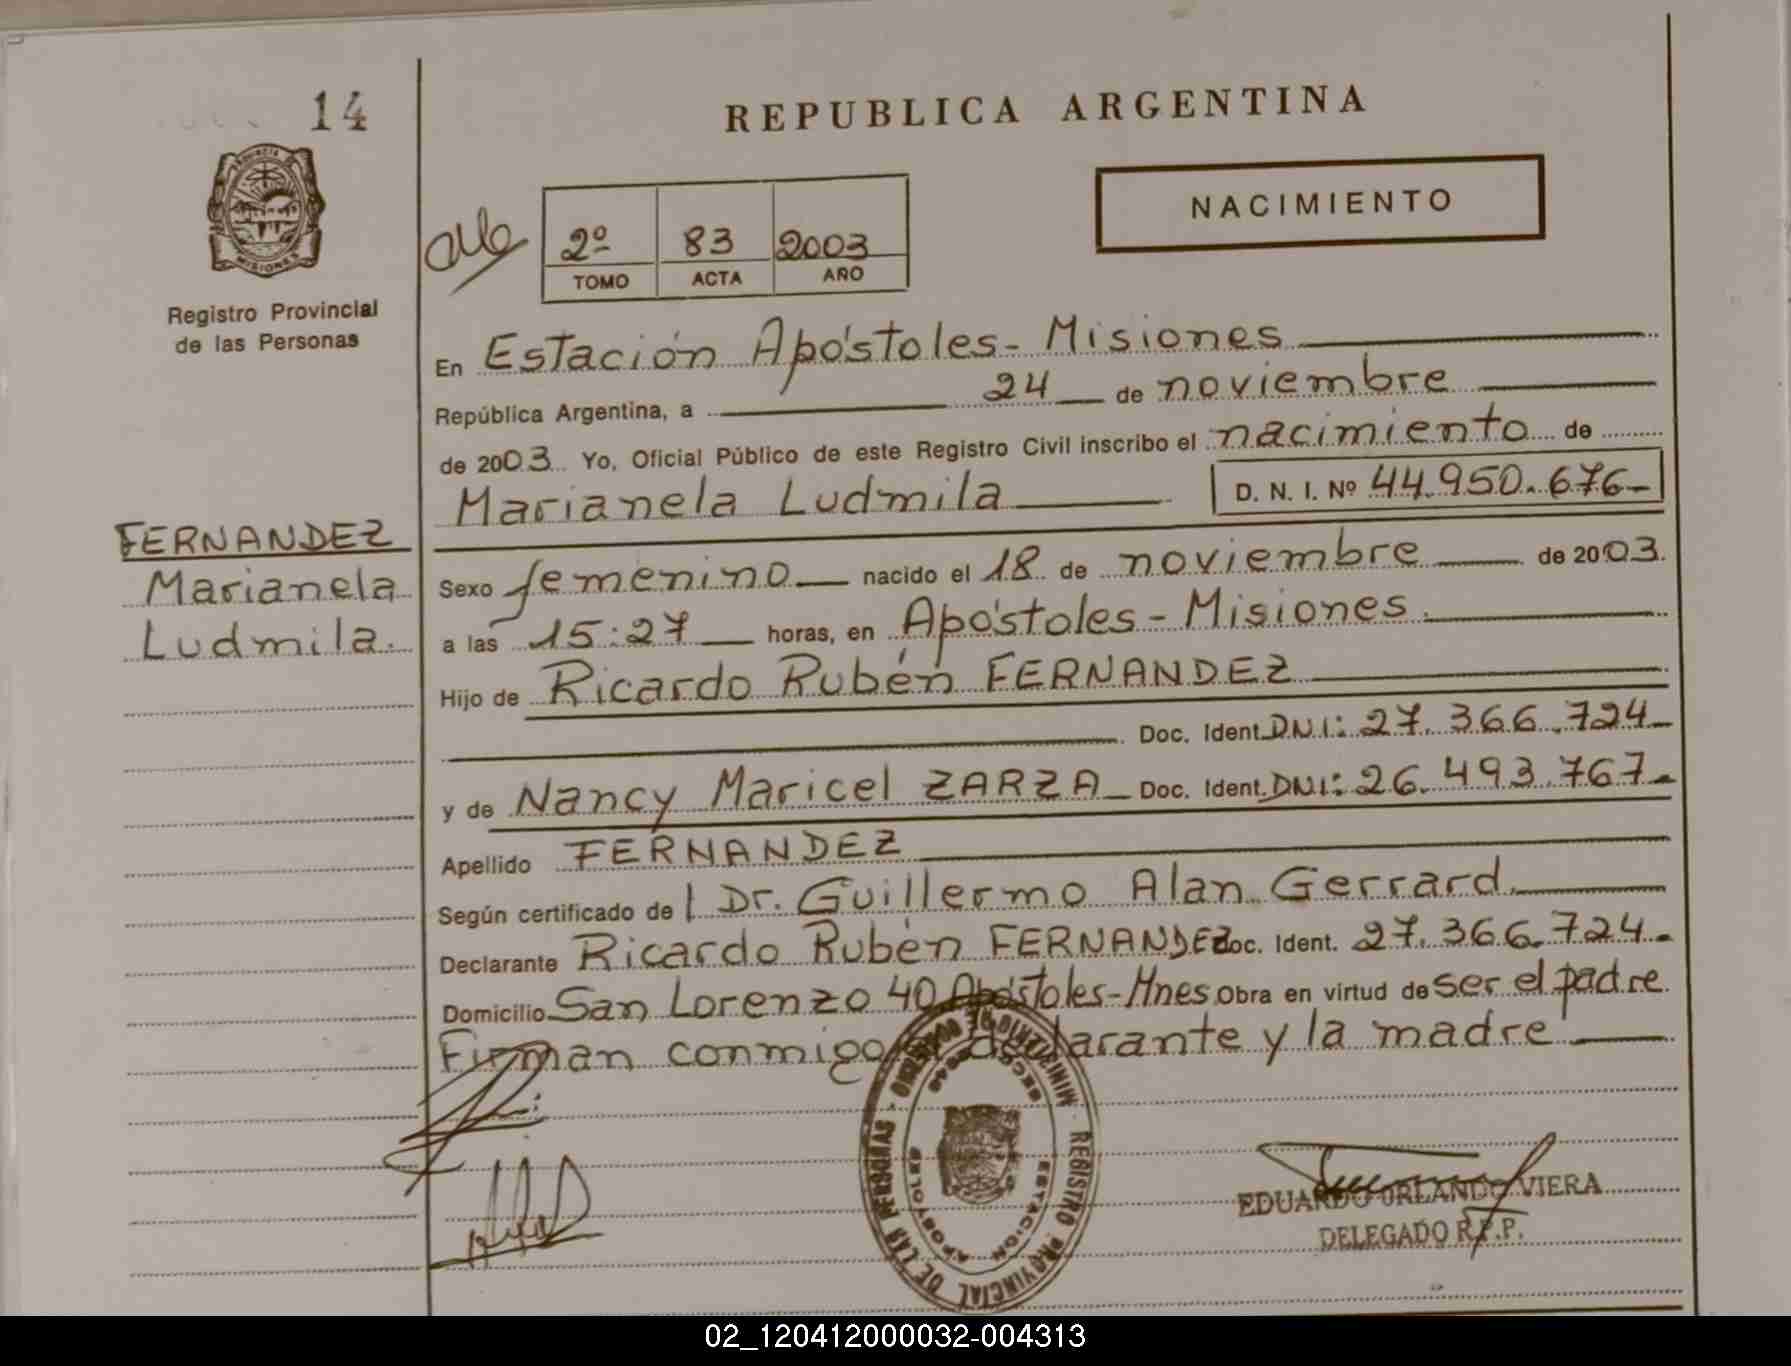 14
REPUBLICA ARGENTINA
PROVINCIA DE
MISIONES
Registro Provincial
de las Personas
NACIMIENTO
2º 83 2003
TOMO ACTA AÑO
En Estación Apóstoles - Misiones
República Argentina, a 24 de noviembre
de 2003 Yo, Oficial Público de este Registro Civil inscribo el nacimiento de
Marianela Ludmila D. N. I. Nº 44.950.676-
FERNANDEZ
Marianela
Ludmila.
Sexo femenino nacido el 18 de noviembre de 2003.
a las 15:27 horas, en Apóstoles - Misiones.
Hijo de Ricardo Rubén FERNANDEZ
Doc. Ident. DNI: 27.366.724-
y de Nancy Maricel ZARZA Doc. Ident. DNI: 26.493.767-
Apellido FERNANDEZ
Según certificado del Dr. Guillermo Alan Gerrard.
Declarante Ricardo Rubén FERNANDEZ Doc. Ident. 27.366.724.-
Domicilio San Lorenzo 40 Apóstoles-Mnes Obra en virtud de ser el padre
Firman conmigo el declarante y la madre
MINISTERIO DE GOBIERNO - REGISTRO PROVINCIAL DE LAS PERSONAS
ESTACION APOSTOLES
EDUARDO ORLANDO VIERA
DELEGADO R.P.P.
02_120412000032-004313